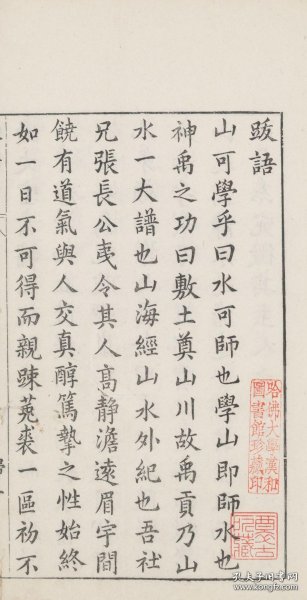 跋語
山可學乎曰水可師也學山即師水也
神禹之功曰敷土奠山川故禹貢乃山
水一大譜也山海經山水外紀也吾社
兄張長公令其人高静澹逺眉宇間
饒有道氣與人交真醇篤摯之性始終
如一日不可得而親踈菟裘一區初不
哈佛大學漢和
圖書館珍藏印